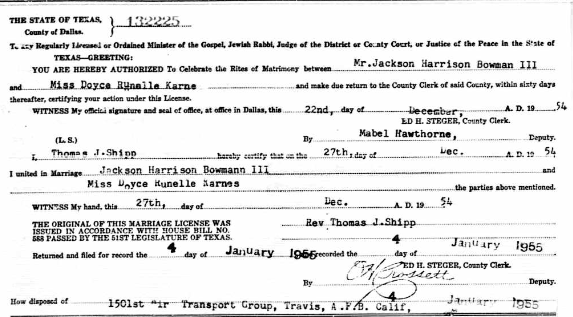 THE STATE OF TEXAS, } 132225
County of Dallas.
To any Regularly Licensed or Ordained Minister of the Gospel, Jewish Rabbi, Judge of the District or County Court, or Justice of the Peace in the State of
TEXAS—GREETING:
YOU ARE HEREBY AUTHORIZED To Celebrate the Rites of Matrimony between Mr.Jackson Harrison Bowman III
and Miss Doyce Runelle Karne and make due return to the County Clerk of said County, within sixty days
thereafter, certifying your action under this License.
WITNESS My official signature and seal of office, at office in Dallas, this 22nd, day of December, A. D. 19 54
ED H. STEGER, County Clerk.
(L. S.) By Mabel Hawthorne, Deputy.
I, Thomas J.Shipp hereby certify that on the 27th, day of Dec. A. D. 19 54
I united in Marriage Jackson Harrison Bowmann III and
Miss Doyce Runelle Karnes the parties above mentioned.
WITNESS My hand, this 27th, day of Dec. A. D. 19 54
THE ORIGINAL OF THIS MARRIAGE LICENSE WAS
ISSUED IN ACCORDANCE WITH HOUSE BILL NO.
588 PASSED BY THE 51ST LEGISLATURE OF TEXAS.
Rev Thomas J.Shipp
Returned and filed for record the 4 day of January 1955 recorded the 4 day of January 1955
ED H. STEGER, County Clerk.
By Deputy.
How disposed of 1501st Air Transport Group, Travis, A.F.B. Calif, 4 January 1955